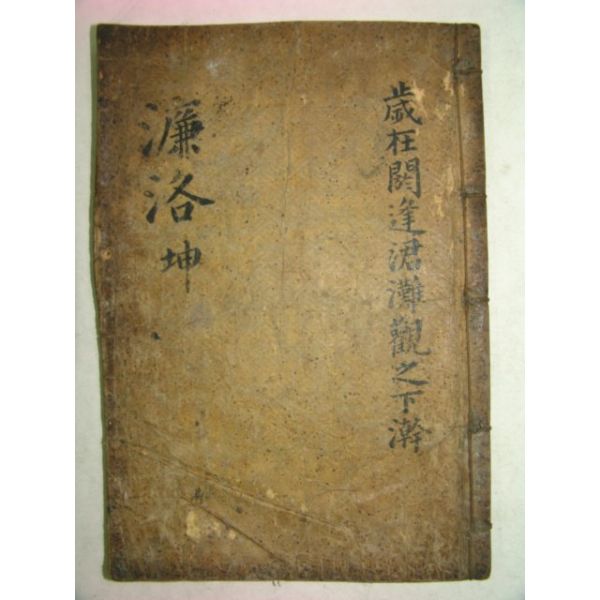 歲在閼逢涒灘觀之下澣
濂洛 坤